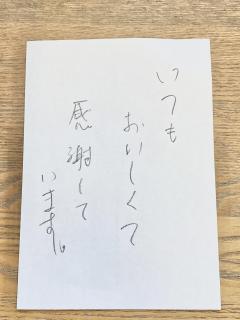 いつも
おいしくて
感謝して
います。